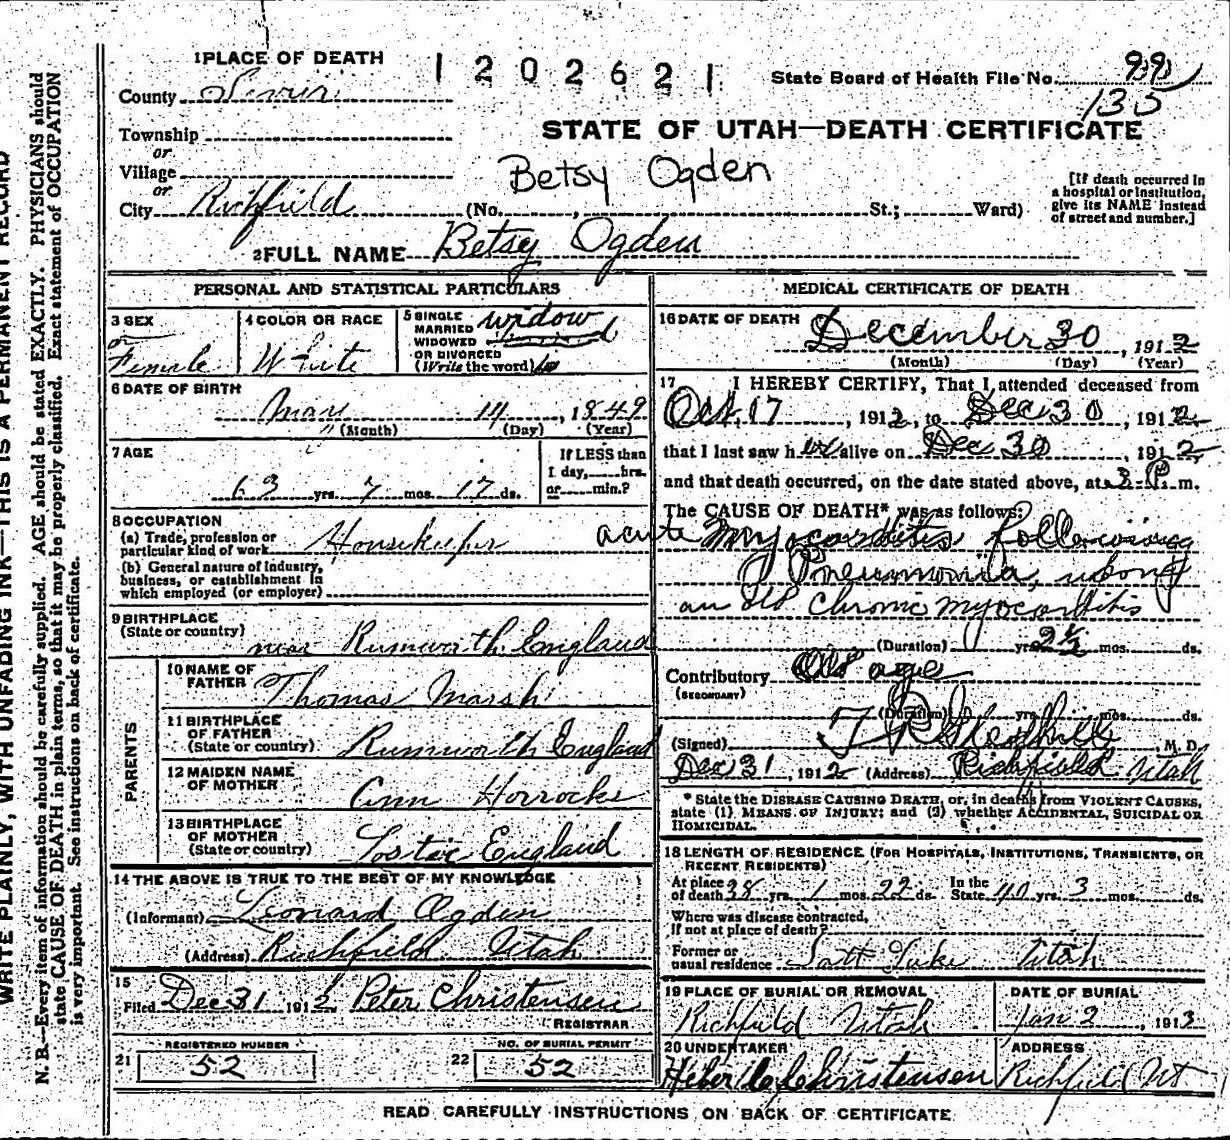 1 PLACE OF DEATH
1 2 0 2 6 2 1
State Board of Health File No. 99
135
County Sevier
STATE OF UTAH—DEATH CERTIFICATE
Township
or
Village
or
Betsy Ogden
City Richfield (No. , St.; Ward)
[If death occurred in a hospital or institution, give its NAME instead of street and number.]
2 FULL NAME Betsy Ogden
PERSONAL AND STATISTICAL PARTICULARS
3 SEX
or
Female
4 COLOR OR RACE
White
5 SINGLE
MARRIED
WIDOWED
OR DIVORCED
(Write the word)
widow
6 DATE OF BIRTH
May 14, 1849
(Month) (Day) (Year)
7 AGE
63 yrs. 7 mos. 17 ds.
If LESS than
1 day, hrs.
or min.?
8 OCCUPATION
(a) Trade, profession or
particular kind of work Housekeeper
(b) General nature of industry,
business, or establishment in
which employed (or employer)
9 BIRTHPLACE
(State or country)
near Rumworth England
PARENTS
10 NAME OF
FATHER
Thomas Marsh
11 BIRTHPLACE
OF FATHER
(State or country)
Rumworth England
12 MAIDEN NAME
OF MOTHER
Ann Horrocks
13 BIRTHPLACE
OF MOTHER
(State or country)
Lostic England
14 THE ABOVE IS TRUE TO THE BEST OF MY KNOWLEDGE
(Informant) Leonard Ogden
(Address) Richfield Utah
15
Filed Dec 31 1912 Peter Christensen
REGISTRAR
21
REGISTERED NUMBER
52
22
NO. OF BURIAL PERMIT
52
MEDICAL CERTIFICATE OF DEATH
16 DATE OF DEATH
December 30, 1912
(Month) (Day) (Year)
17 I HEREBY CERTIFY, That I attended deceased from
Oct. 17 1912, to Dec 30, 1912
that I last saw her alive on Dec 30 1912,
and that death occurred, on the date stated above, at 3 P. m.
The CAUSE OF DEATH* was as follows:
acute myocarditis following
Pneumonia, upon
an old chronic myocarditis
(Duration) yrs. 2½ mos. ds.
Contributory Old age
(SECONDARY)
(Duration) yrs. mos. ds.
(Signed) T R Gledhill, M. D.
Dec 31, 1912 (Address) Richfield Utah
* State the DISEASE CAUSING DEATH, or, in deaths from VIOLENT CAUSES,
state (1) MEANS OF INJURY; and (2) whether ACCIDENTAL, SUICIDAL OR
HOMICIDAL.
18 LENGTH OF RESIDENCE (FOR HOSPITALS, INSTITUTIONS, TRANSIENTS, OR
RECENT RESIDENTS)
At place
of death 38 yrs. 1 mos. 22 ds. In the
State 40 yrs. 3 mos. ds.
Where was disease contracted,
If not at place of death?
Former or
usual residence Salt Lake Utah
19 PLACE OF BURIAL OR REMOVAL
Richfield Utah
DATE OF BURIAL
Jan 2, 1913
20 UNDERTAKER
Heber Christensen
ADDRESS
Richfield Ut
READ CAREFULLY INSTRUCTIONS ON BACK OF CERTIFICATE
WRITE PLAINLY, WITH UNFADING INK—THIS IS A PERMANENT RECORD
N. B.—Every item of information should be carefully supplied. AGE should be stated EXACTLY. PHYSICIANS should
state CAUSE OF DEATH in plain terms, so that it may be properly classified. Exact statement of OCCUPATION
is very important. See instructions on back of certificate.